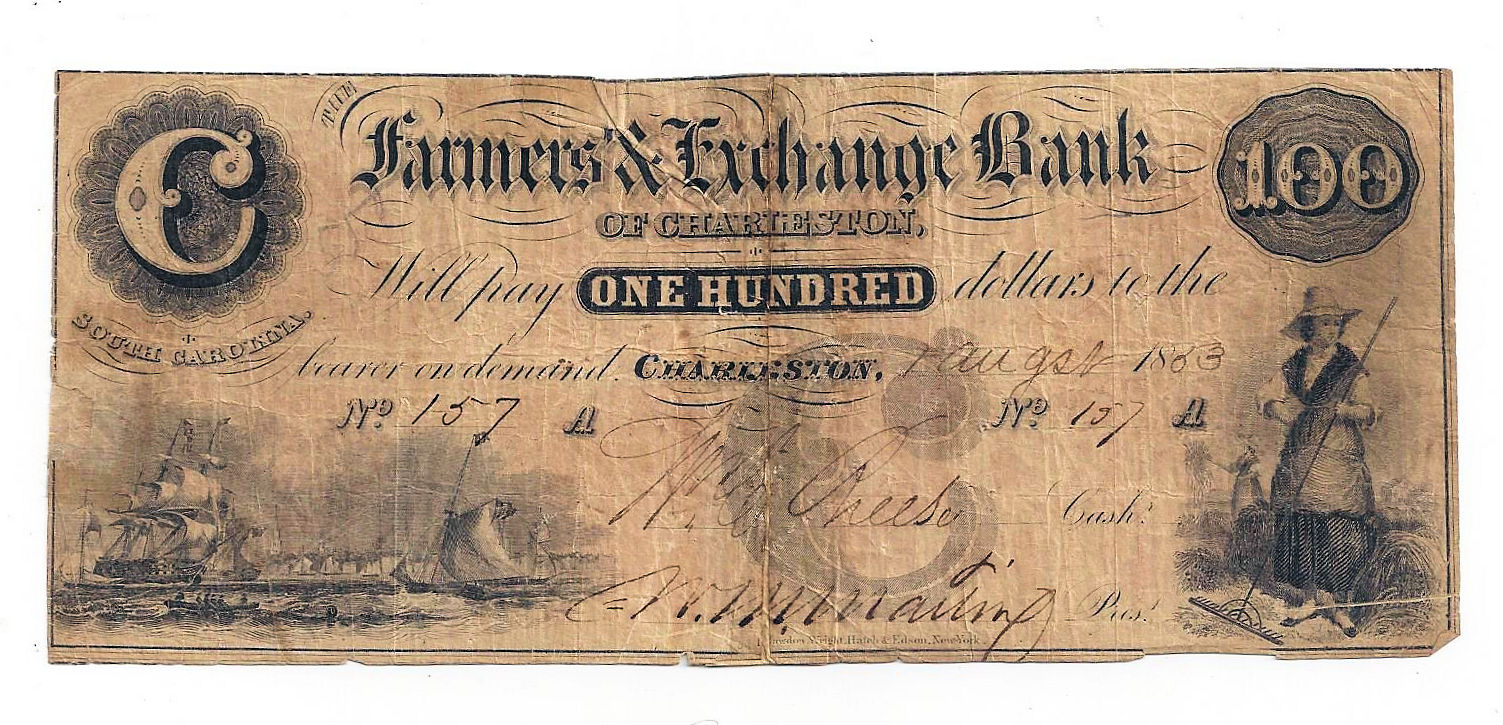 C
THE
Farmers' & Exchange Bank
100
OF CHARLESTON,
Will pay ONE HUNDRED dollars to the
SOUTH CAROLINA.
bearer on demand. CHARLESTON, 1 augst 1853
No 157 A No 157 A
Wm Cash.r
W. M. Martin Pres.t
Rawdon, Wright, Hatch & Edson, New York.